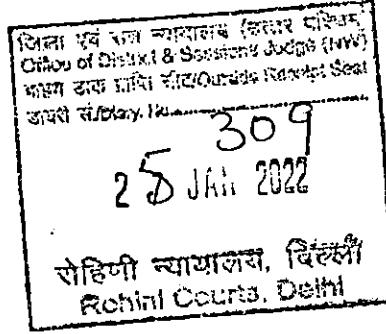 जिला एवं सत्र न्यायाधीश (उत्तर पश्चिम)
Office of District & Sessions Judge (NW)
बाह्य डाक प्राप्ति सीट/Outside Receipt Seat
डायरी सं./Diary. No.............
309
25 JAN 2022
रोहिणी न्यायालय, दिल्ली
Rohini Courts, Delhi